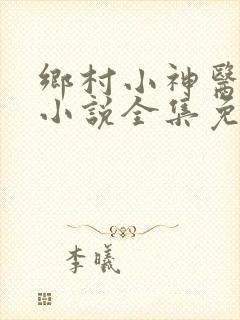 鄉村小神醫
小説全集免
李曦